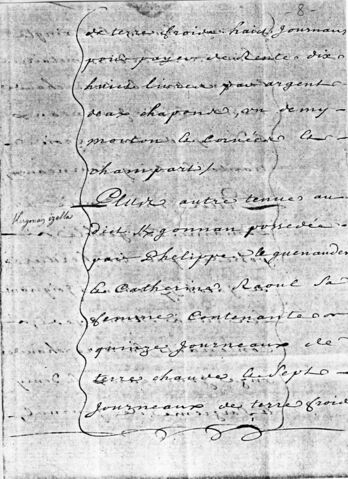 -8-
de terre froide huit Journaux
pour payer de Rente dix
huict livres par argent
deux chapons, un demy
mouton le corvées le
champart /
Plus autre tenue au
dict Kgonnan possedée
par Phelippe le guenauder
le Catherine Raoul sa
femme Contenante
quinze Journeaux de
terre chauve le Sept
Journeaux de terre froid